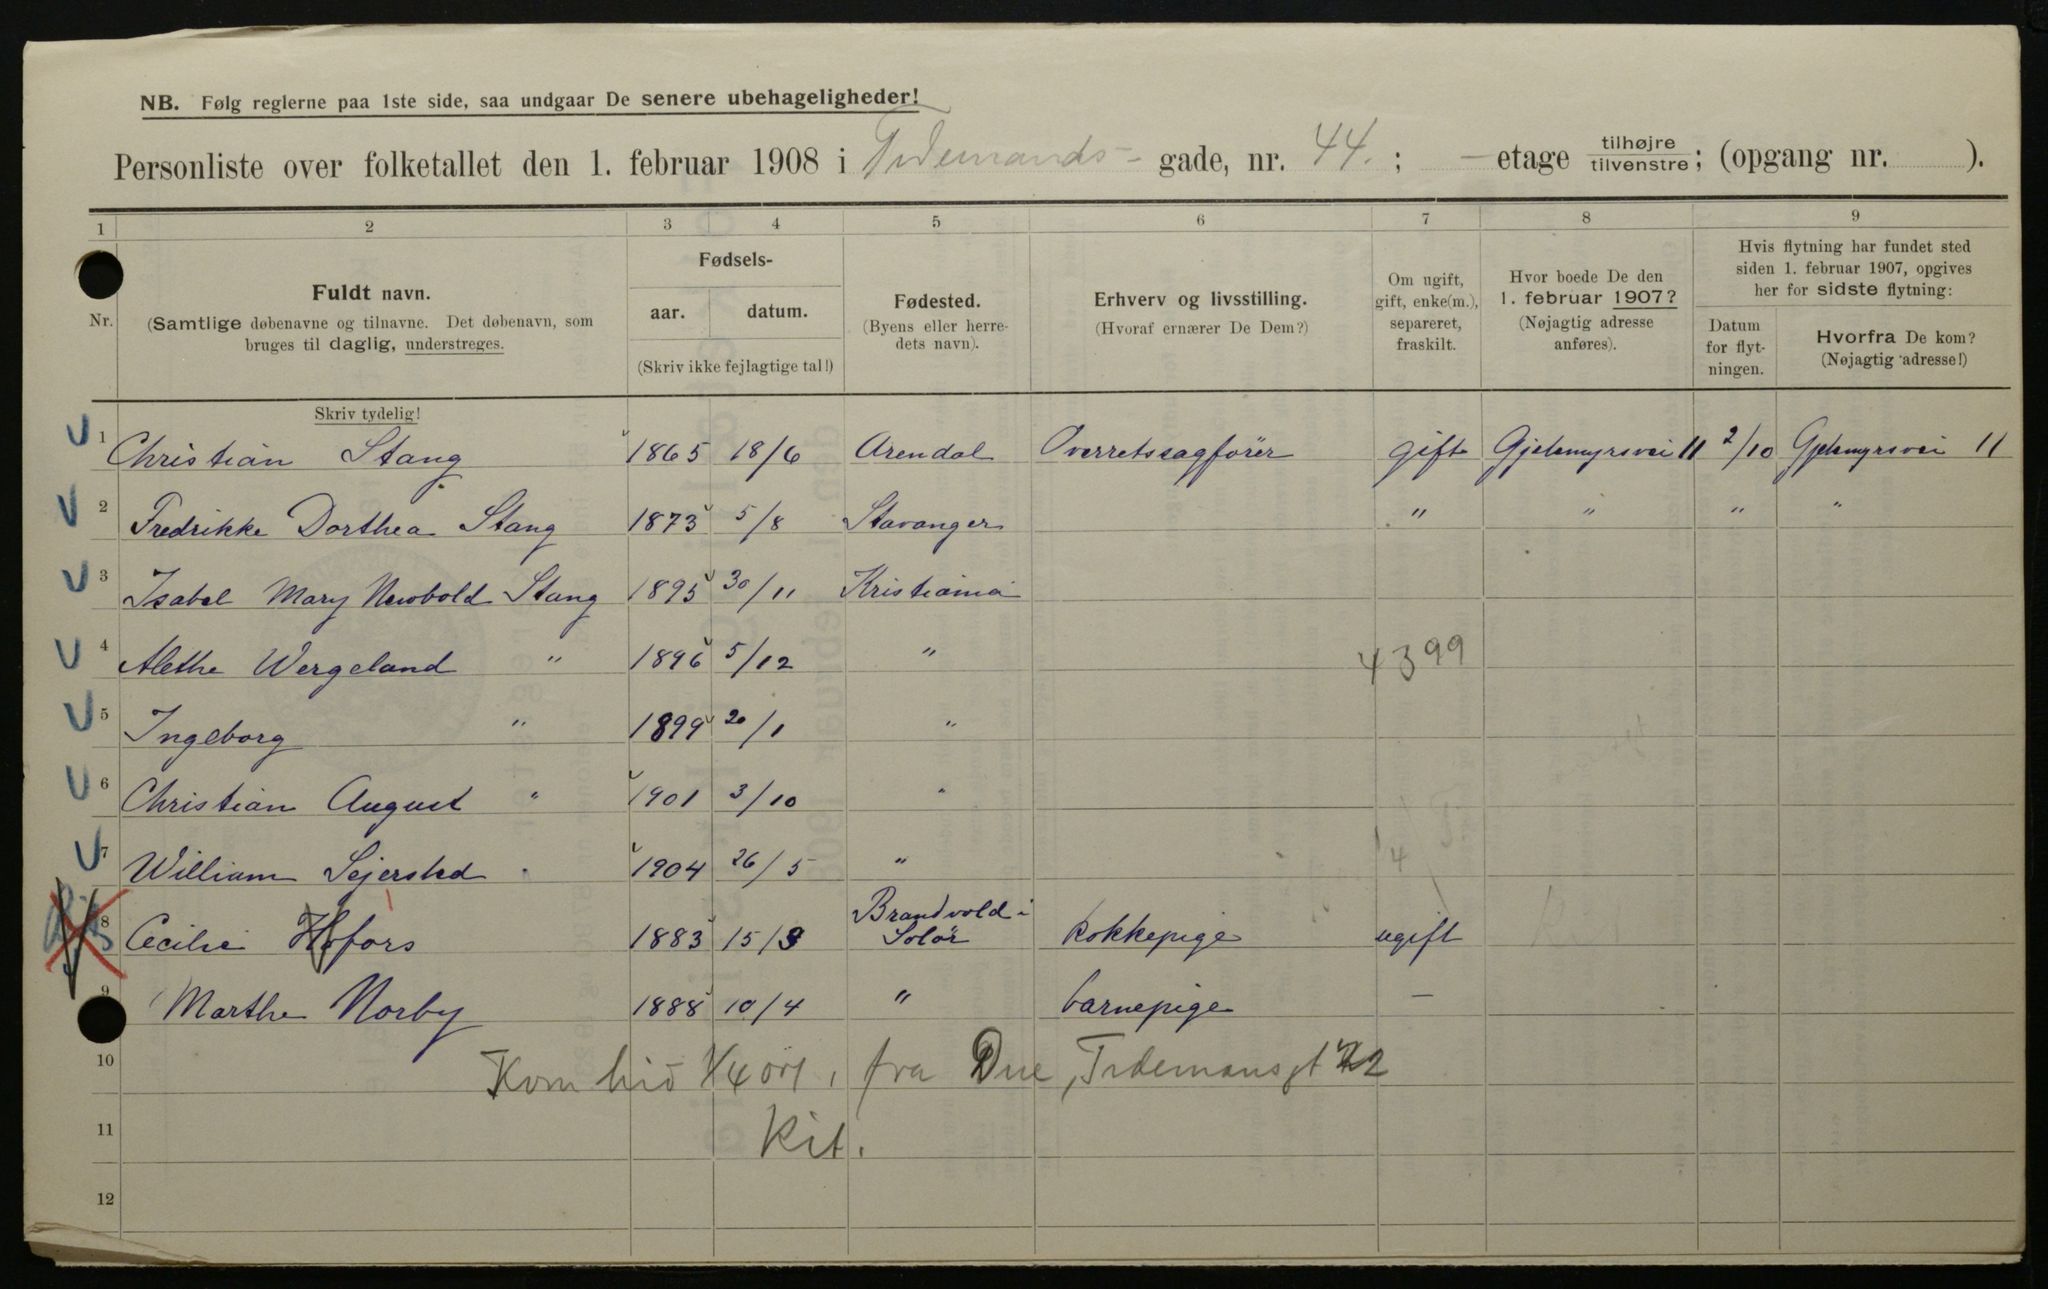 NB. Følg reglerne paa 1ste side, saa undgaar De senere ubehageligheder!
Personliste over folketallet den 1. februar 1908 i Tidemands- gade, nr. 44. ; - etage tilhøjre tilvenstre; (opgang nr. ).
1 2 3 4 5 6 7 8 9
Nr.
Fuldt navn.
(Samtlige døbenavne og tilnavne. Det døbenavn, som
bruges til daglig, understreges.
Skriv tydelig!
Fødsels-
aar. datum.
(Skriv ikke fejlagtige tal!)
Fødested.
(Byens eller herre-
dets navn).
Erhverv og livsstilling.
(Hvoraf ernærer De Dem?)
Om ugift,
gift, enke(m.),
separeret,
fraskilt.
Hvor boede De den
1. februar 1907?
(Nøjagtig adresse
anføres).
Hvis flytning har fundet sted
siden 1. februar 1907, opgives
her for sidste flytning:
Datum
for flyt-
ningen.
Hvorfra De kom?
(Nøjagtig adresse!)
1 Christian Stang 1865 18/6 Arendal Overretssagfører gift Gjetemyrsvei 11 2/10 Gjetemyrsvei 11
2 Fredrikke Dorthea Stang 1873 5/8 Stavanger " " " "
3 Isabel Mary Newbold Stang 1895 30/11 Kristiania
4 Alethe Wergeland " 1896 5/12 " 4399
5 Ingeborg " 1899 20/1 "
6 Christian August " 1901 3/10 "
7 William Sejersted " 1904 26/5 "
8 Cecilie Hofors 1883 15/9 Brandvold i
Solør kokkepige ugift
9 Marthe Norby 1888 10/4 " barnepige -
10 Kom hid 1/4 07, fra Due, Tidemansgt 22
11 Kit.
12